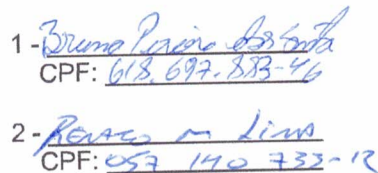 1 - Bruna Pereira dos Santos
CPF: 618.697.883-46
2 - Renato M Lima
CPF: 057 140 733-12